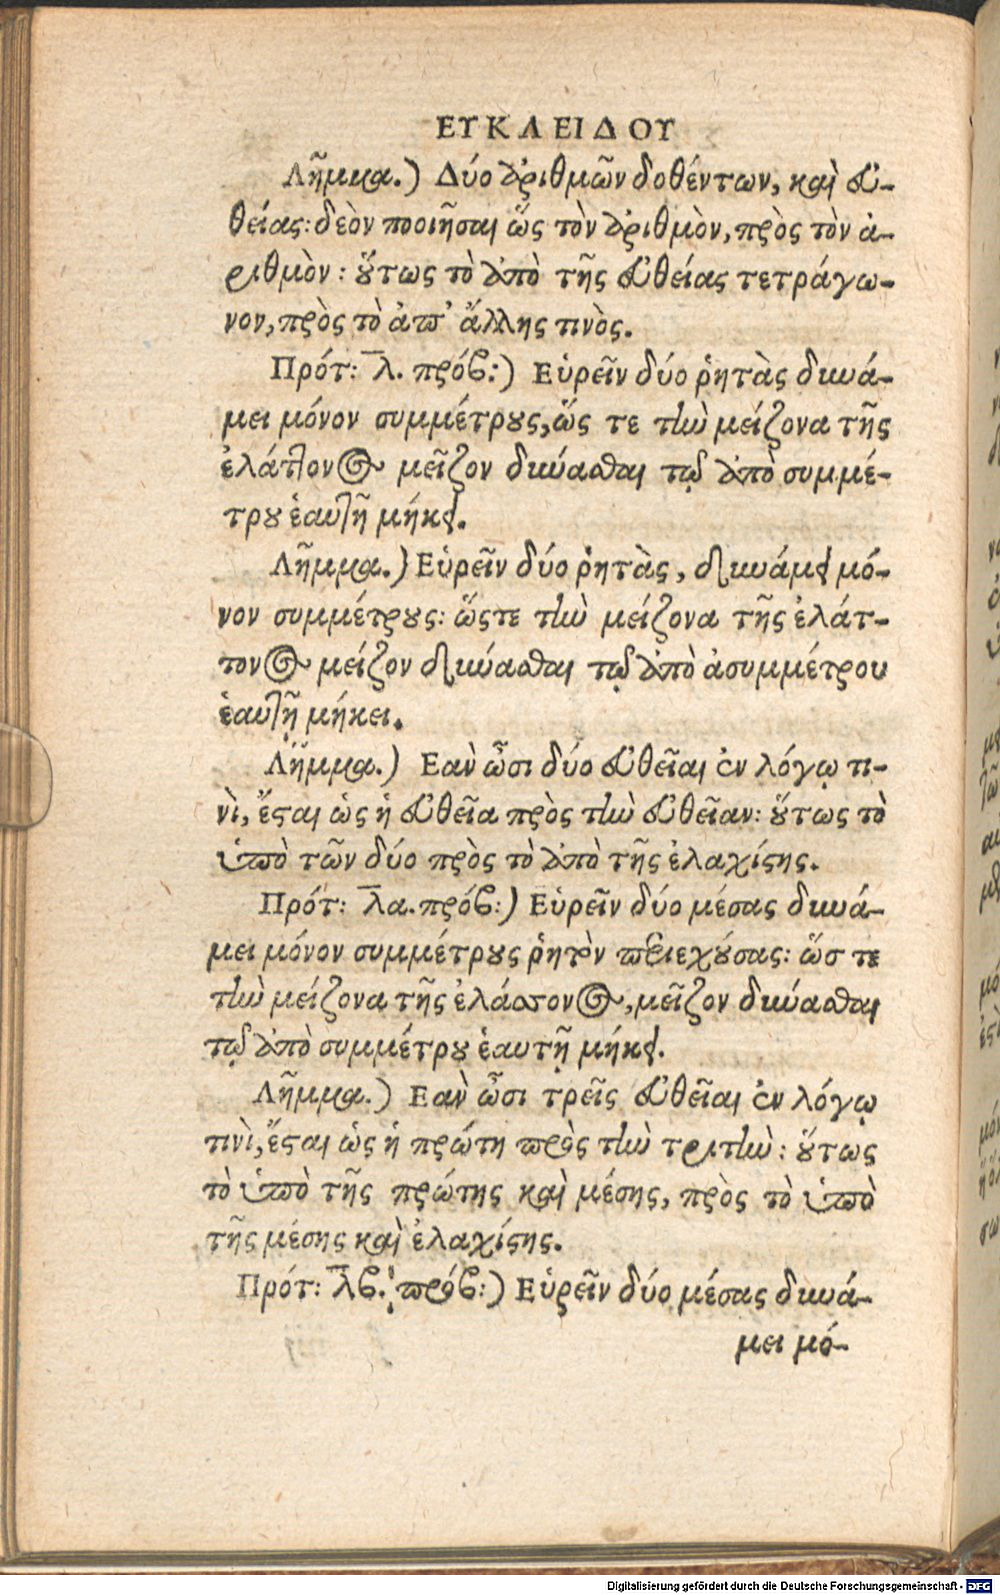 ΕΥΚΛΕΙΔΟΥ
Λῆμμα.) Δύο ἀριθμῶν δοθέντων, καὶ εὐ-
θείας: δεὸν ποοιῆσαι ὥς τὸν ἀριθμὸν, πρὸς τὸν ἀ-
ριθμὸν: ὅυτως τὸ ἀπὸ τῆς εὐθείας τετράγω-
νον, πρὸς τὸ ἀπ᾽ ἄλλης τινὸς.
Πρότ: λ̅. πρόβ:) Εὑρεῖν δύο ῥητὰς δυνά-
μει μόνον συμμέτρους, ὥς τε τὴν μείζονα τῆς
ἐλάττονος μεῖζον δύνασθαι τῷ ἀπὸ συμμέ-
τρου ἑαυτῇ μήκει.
Λῆμμα.) Εὑρεῖν δύο ῥητὰς, δυνάμει μό-
νον συμμέτρους: ὥςτε τὴν μείζονα τῆς ἐλάτ-
τονος μείζον δύνασθαι τῷ ἀπὸ ἀσυμμέτρου
ἑαυτῇ μήκει.
Λῆμμα.) Εαν ὦσι δύο εὐθεῖαι ἐν λόγῳ τι-
νὶ, ἔσται ὡς ἡ εὐθεῖα πρὸς τὴν εὐθεῖαν: ὅυτως τὸ
ὑπὸ τῶν δύο πρὸς τὸ ἀπὸ τῆς ἐλαχίστης.
Πρότ: λ̅α. πρόβ:) Εὑρεῖν δύο μέσας δυνά-
μει μόνον συμμέτρους ῥητὸν περιεχούσας: ὥσ τε
τὴν μείζονα τῆς ἐλάσσονος, μεῖζον δύνασθαι
τῷ ἀπὸ συμμέτρου ἑαυτῇ μήκει.
Λῆμμα.) Εαν ὦσι τρεῖς εὐθεῖαι ἐν λόγῳ
τινὶ, ἔσται ὡς ἡ πρώτη πρὸς τὴν τρίτην: ὅυτως
τὸ ὑπὸ τῆς πρώτης καὶ μέσης, πρὸς τὸ ὑπὸ
τῆς μέσης καὶ ἐλαχίστης.
Πρότ: λ̅β. πρόβ:) Εὑρεῖν δύο μέσας δυνά-
μει μό-
Digitalisierung gefördert durch die Deutsche Forschungsgemeinschaft - DFG